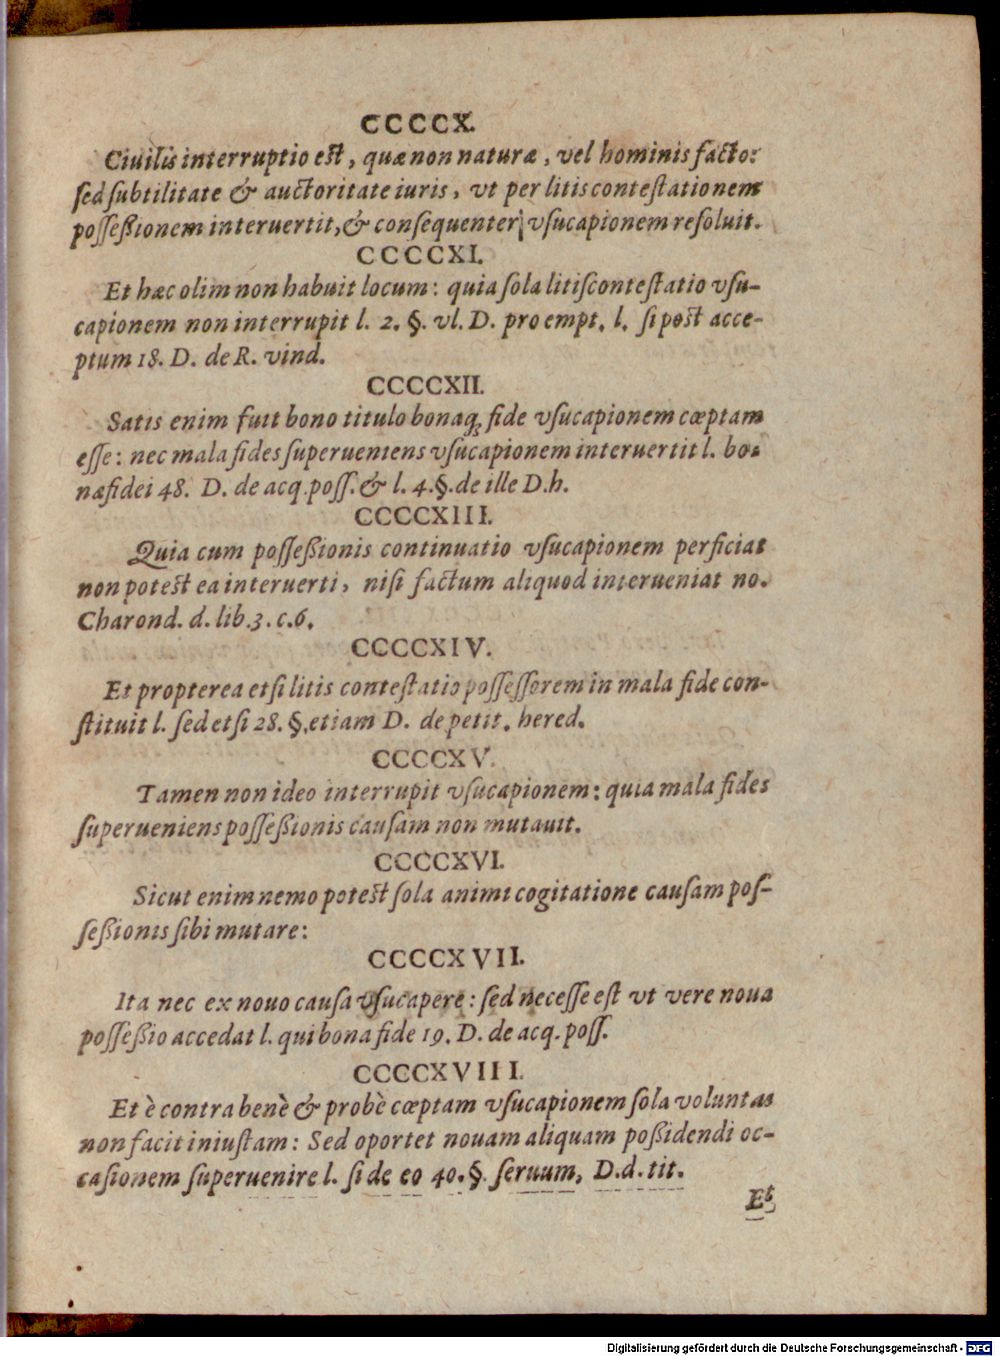 CCCCX.
Ciuilis interruptio est, quæ non naturæ, vel hominis facto:
sed subtilitate & auctoritate iuris, vt per litis contestationem
possessionem interuertit, & consequenter vsucapionem resoluit.
CCCCXI.
Et hæc olim non habuit locum: quia sola litiscontestatio vsu-
capionem non interrupit l. 2. §. vl. D. pro empt. l. si post acce-
ptum 18. D. de R. vind.
CCCCXII.
Satis enim fuit bono titulo bonaq; fide vsucapionem cœptam
esse: nec mala fides superueniens vsucapionem interuertit l. bo-
næ fidei 48. D. de acq. poss. & l. 4. §. de ille D. h.
CCCCXIII.
Quia cum possessionis continuatio vsucapionem perficiat
non potest ea interuerti, nisi factum aliquod interueniat no.
Charond. d. lib. 3. c. 6.
CCCCXIV.
Et propterea etsi litis contestatio possessorem in mala fide con-
stituit l. sed etsi 28. §. etiam D. de petit. hered.
CCCCXV.
Tamen non ideo interrupit vsucapionem: quia mala fides
superueniens possessionis causam non mutauit.
CCCCXVI.
Sicut enim nemo potest sola animi cogitatione causam pos-
sessionis sibi mutare:
CCCCXVII.
Ita nec ex nouo causa vsucapere: sed necesse est vt vere noua
possessio accedat l. qui bona fide 19. D. de acq. poss.
CCCCXVIII.
Et è contra benè & probè cœptam vsucapionem sola voluntas
non facit iniustam: Sed oportet nouam aliquam possidendi oc-
casionem superuenire l. si de eo 40. §. seruum, D. d. tit.
Et
Digitalisierung gefördert durch die Deutsche Forschungsgemeinschaft - DFG